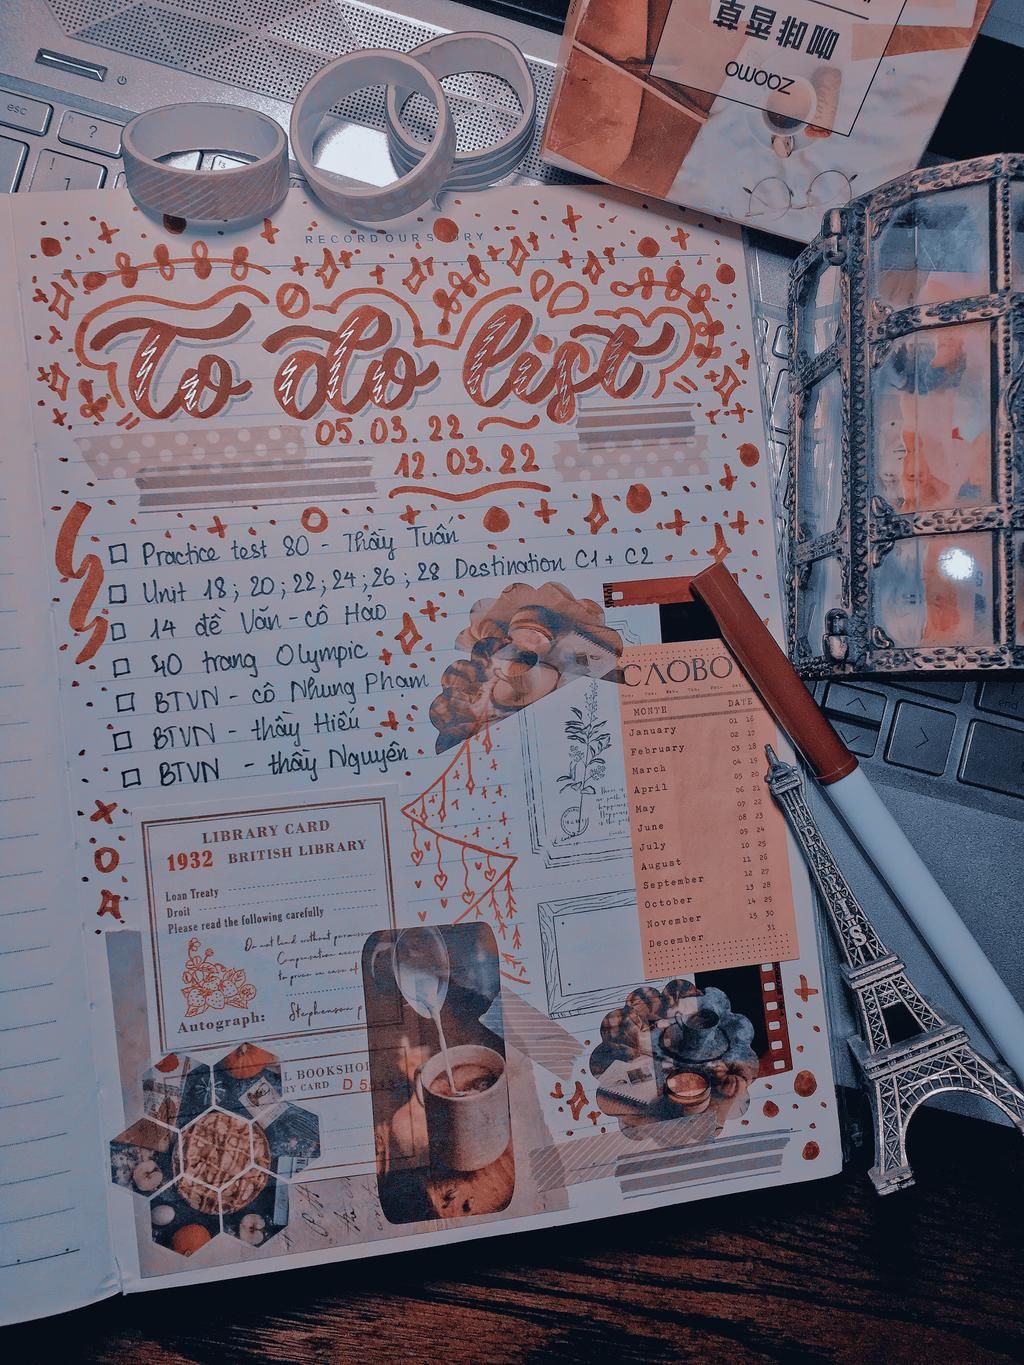 esc
?
!
1
咖啡香草
zaomo
RECORD OUR STORY
To do list
05.03.22 ~
12.03.22
□ Practice test 80 - Thầy Tuấn
□ Unit 18; 20; 22; 24; 26; 28 Destination C1 + C2
□ 14 đề Văn - cô Hảo
□ 40 trang Olympic
□ BTVN - cô Nhung Phạm
□ BTVN - thầy Hiếu
□ BTVN - thầy Nguyên
СЛОВО
MONTH DATE
January 01 16
February 02 17
March 03 18
April 04 19
May 05 20
June 06 21
July 07 22
August 08 23
September 09 24
October 10 25
November 11 26
December 12 27
13 28
14 29
15 30
31
LIBRARY CARD
1932 BRITISH LIBRARY
Loan Treaty
Droit
Please read the following carefully
Do not lend without permission
Compensation
to prison in case of
Autograph: Stephenson
L BOOKSHOP
RY CARD D 5
PARIS
end